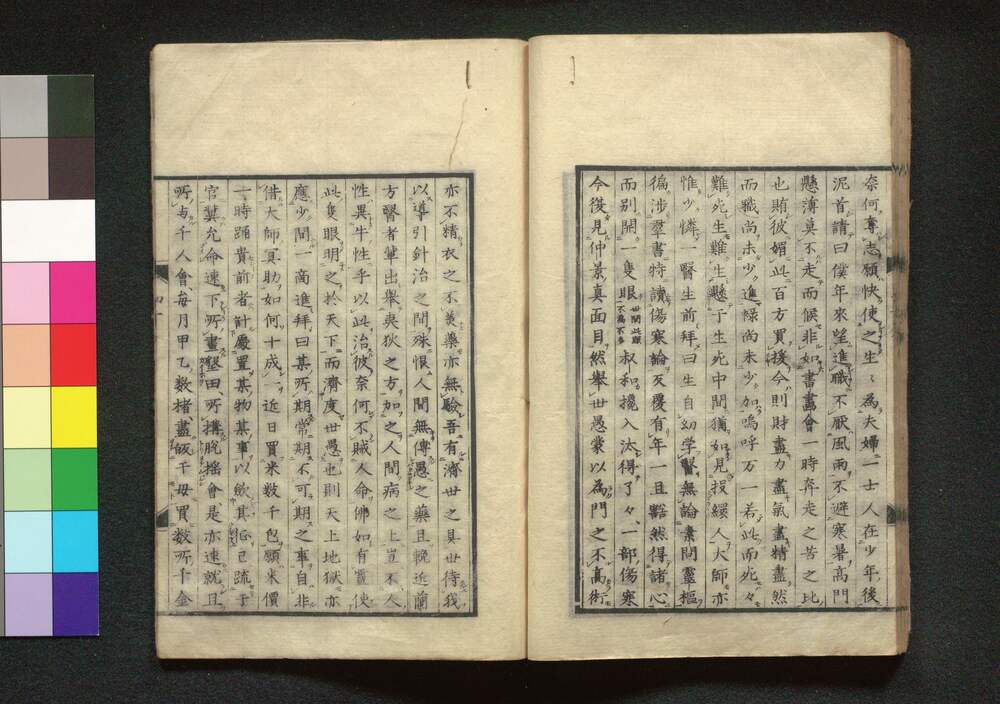 奈何奪志願快使之生々為夫婦一士人在少年後
泥首請曰僕年來望進職不厭風雨不避寒暑高門
懸薄莫不走而候非如書畫會一時奔走之苦之比
也賄彼媚此百方買援今則財盡力盡氣盡精盡然
而職尚未少進祿尚未少加嗚呼万一若此而死々
難死生難生懸于生死中間猶如見投繯人大師亦
惟少憐一醫生前拜曰生自幼学醫無論素問靈樞
徧涉羣書特讀傷寒論反覆有年一旦豁然得諸心
而別開一隻眼世間此類不為不多叔和攙入汰得了々一部傷寒
今復見仲景真面目然舉世愚蒙以為門之不高術
亦不精衣之不美藥亦無驗吾有濟世之具世待我
以導引針治之間殊恨人間無傳愚之藥且輓近蘭
方醫者輩出舉夷狄之方加之人間病之上豈不人
性異牛性乎以此治彼奈何不賊人命佛如有靈使
此隻眼明之於天下而濟度世愚也則天上地獄亦
應少間一商進拜曰某所期常期不可期之事自非
借大師冥助如何十成一近日買米数千包願米價
一時踊貴前者計慶置某物某事以歛其怨已疏于
官冀允命速下所畫墾田所搆脫搖會是亦速就且
所与千人會每月甲乙数楮盡皈千毋買数所千金